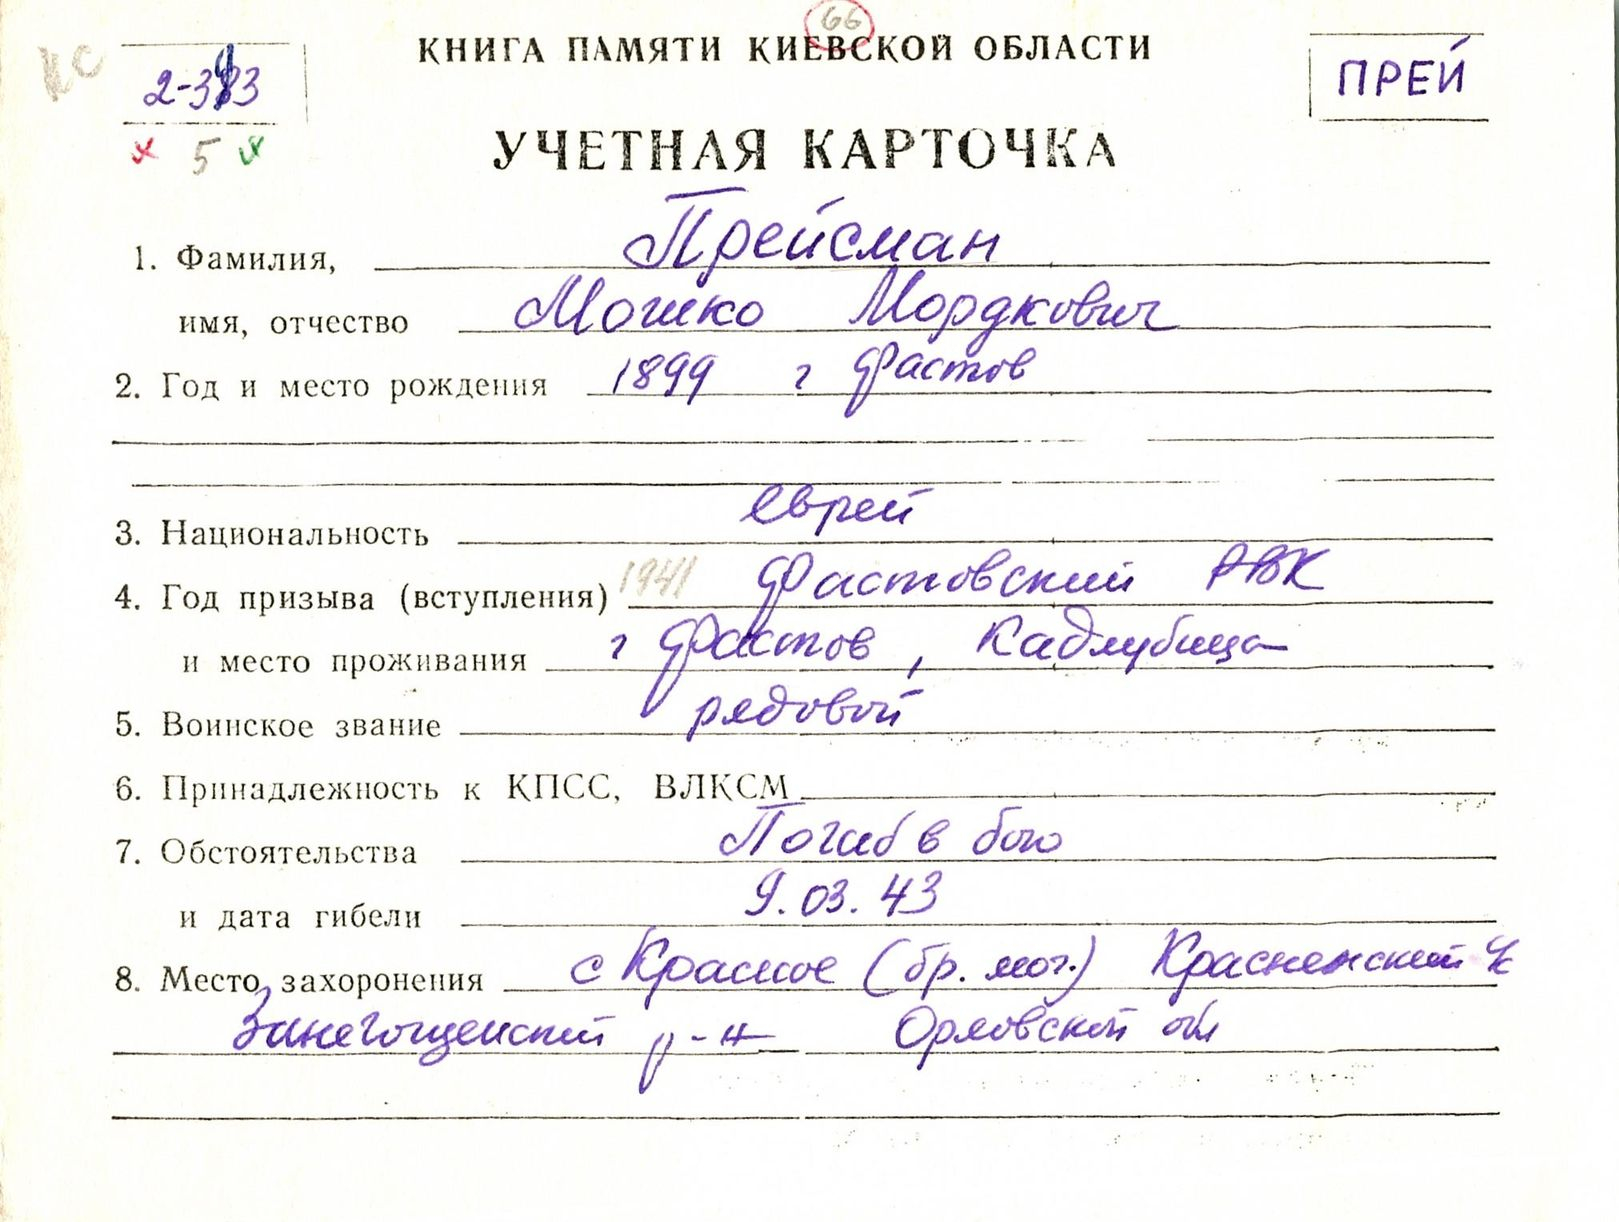 66
КНИГА ПАМЯТИ КИЕВСКОЙ ОБЛАСТИ
КС
ПРЕЙ
5
УЧЕТНАЯ КАРТОЧКА
1. Фамилия, Прейсман
имя, отчество Мошко Мордкович
2. Год и место рождения 1899 г Фастов
3. Национальность еврей
4. Год призыва (вступления) 1941 Фастовский РВК
и место проживания г Фастов, Кадлубица
5. Воинское звание рядовой
6. Принадлежность к КПСС, ВЛКСМ
7. Обстоятельства Погиб в бою
и дата гибели 9.03.43
8. Место захоронения с Красное (бр. мог.) Красненский
р-н Орловской обл